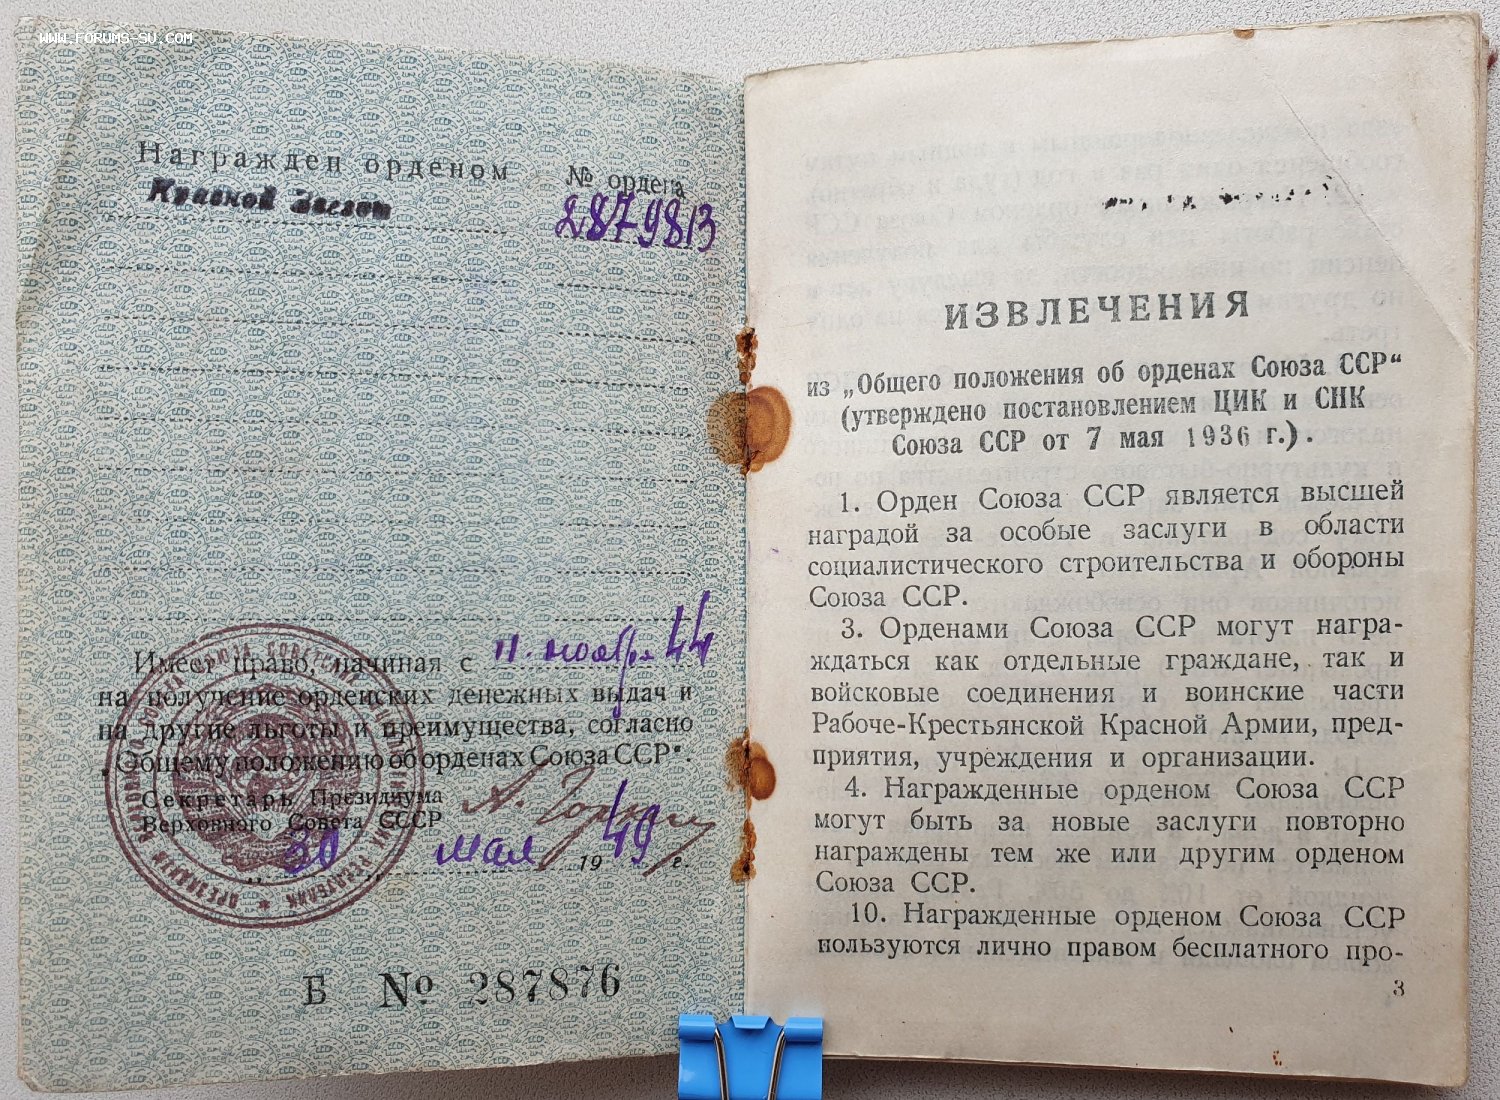 WWW.FORUMS-SU.COM
Награжден орденом
№ ордена
Красной Звезды
2879813
Имеет право, начиная с 11. ноября 44
на получение орденских денежных выдач и
на другие льготы и преимущества, согласно
„Общему положению об орденах Союза ССР“.
Секретарь Президиума
Верховного Совета СССР
А. Горкин
„30„ мая 1949 г.
Б № 287876
ИЗВЛЕЧЕНИЯ
из „Общего положения об орденах Союза ССР“
(утверждено постановлением ЦИК и СНК
Союза ССР от 7 мая 1936 г.).
1. Орден Союза ССР является высшей
наградой за особые заслуги в области
социалистического строительства и обороны
Союза ССР.
3. Орденами Союза ССР могут награ-
ждаться как отдельные граждане, так и
войсковые соединения и воинские части
Рабоче-Крестьянской Красной Армии, пред-
приятия, учреждения и организации.
4. Награжденные орденом Союза ССР
могут быть за новые заслуги повторно
награждены тем же или другим орденом
Союза ССР.
10. Награжденные орденом Союза ССР
пользуются лично правом бесплатного про-
3